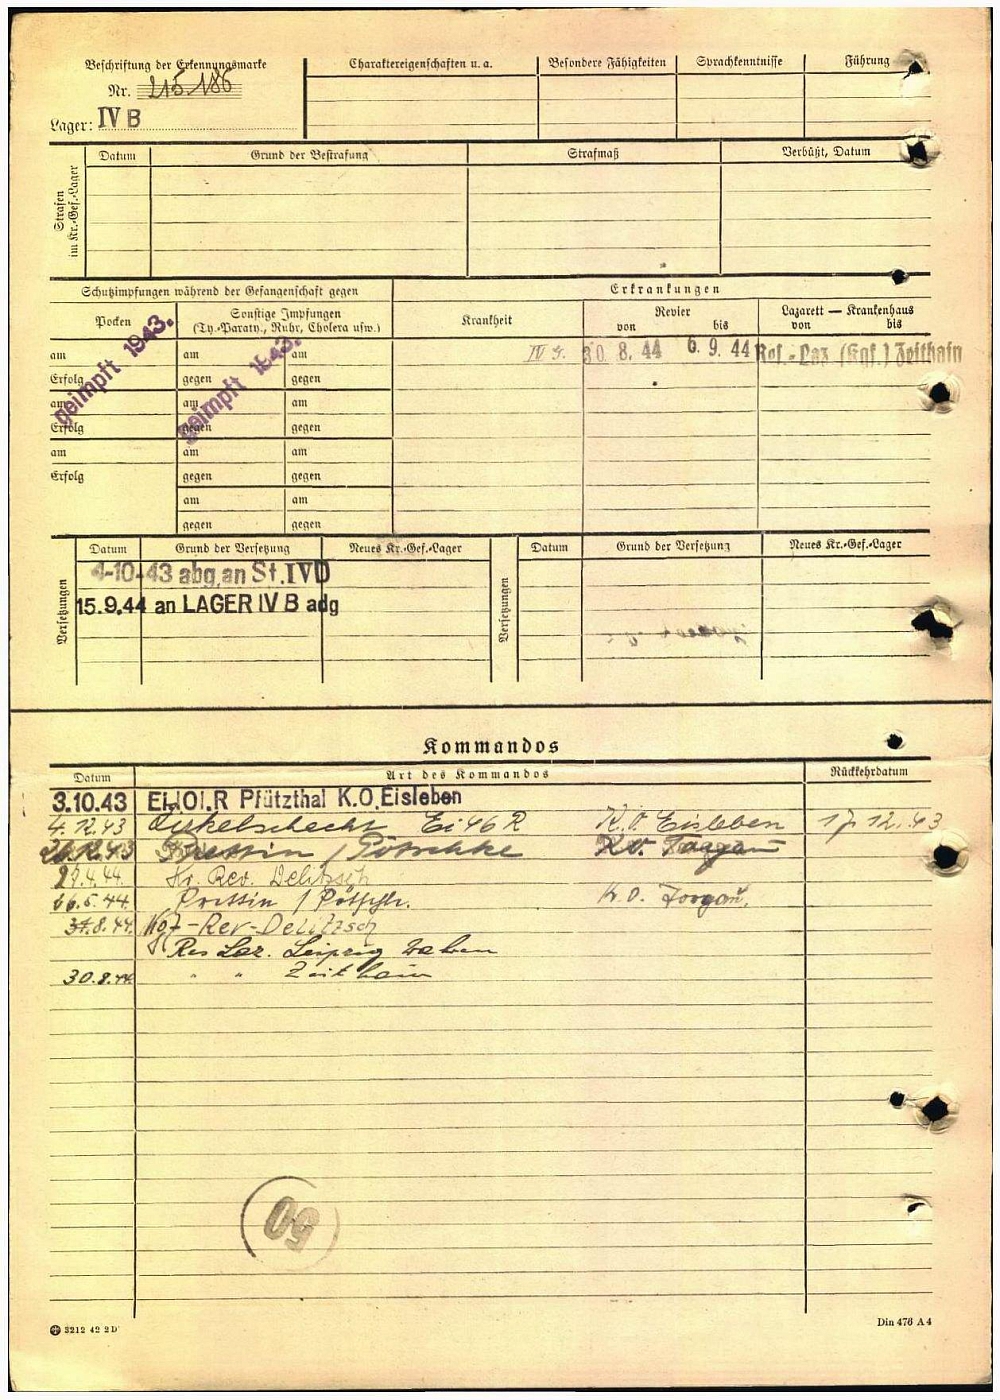 Beschriftung der Erkennungsmarke
Nr. 215.186
Lager: IV B
Charaktereigenschaften u. a.
Besondere Fähigkeiten
Sprachkenntnisse
Führung
Strafen im Kr.-Gef.-Lager
Datum
Grund der Bestrafung
Strafmaß
Verbüßt, Datum
Schutzimpfungen während der Gefangenschaft gegen
Erkrankungen
Pocken
Sonstige Impfungen
(Ty.-Paraty., Ruhr, Cholera usw.)
Krankheit
Revier
von bis
Lazarett — Krankenhaus
von bis
geimpft 1943.
geimpft 1943.
am am am
30 8. 44 6. 9. 44 Res.-Laz (Kgf.) Zeithain
Erfolg gegen gegen
am am am
Erfolg gegen gegen
am am am
Erfolg gegen gegen
am am
gegen gegen
Versetzungen
Datum Grund der Versetzung Neues Kr.-Gef.-Lager
4-10-43 abg, an St. IVD
15.9.44 an LAGER IV B adg
Versetzungen
Datum Grund der Versetzung Neues Kr.-Gef.-Lager
Kommandos
Datum Art des Kommandos Rückkehrdatum
3.10.43 Pfützthal K.O. Eisleben
4.12.43 Ei 46 R K.O. Eisleben 17.12.43
26.12.43 Prettin / Pötschke K.O. Torgau
Kr. Rev. Delitzsch
16.5.44 Prettin / K.O. Torgau.
31.8.44 Rev-Delitzsch
Res Laz. Leipzig Wahren
30.8.44 " " Zeithain
50
3212 42 2D
Din 476 A 4